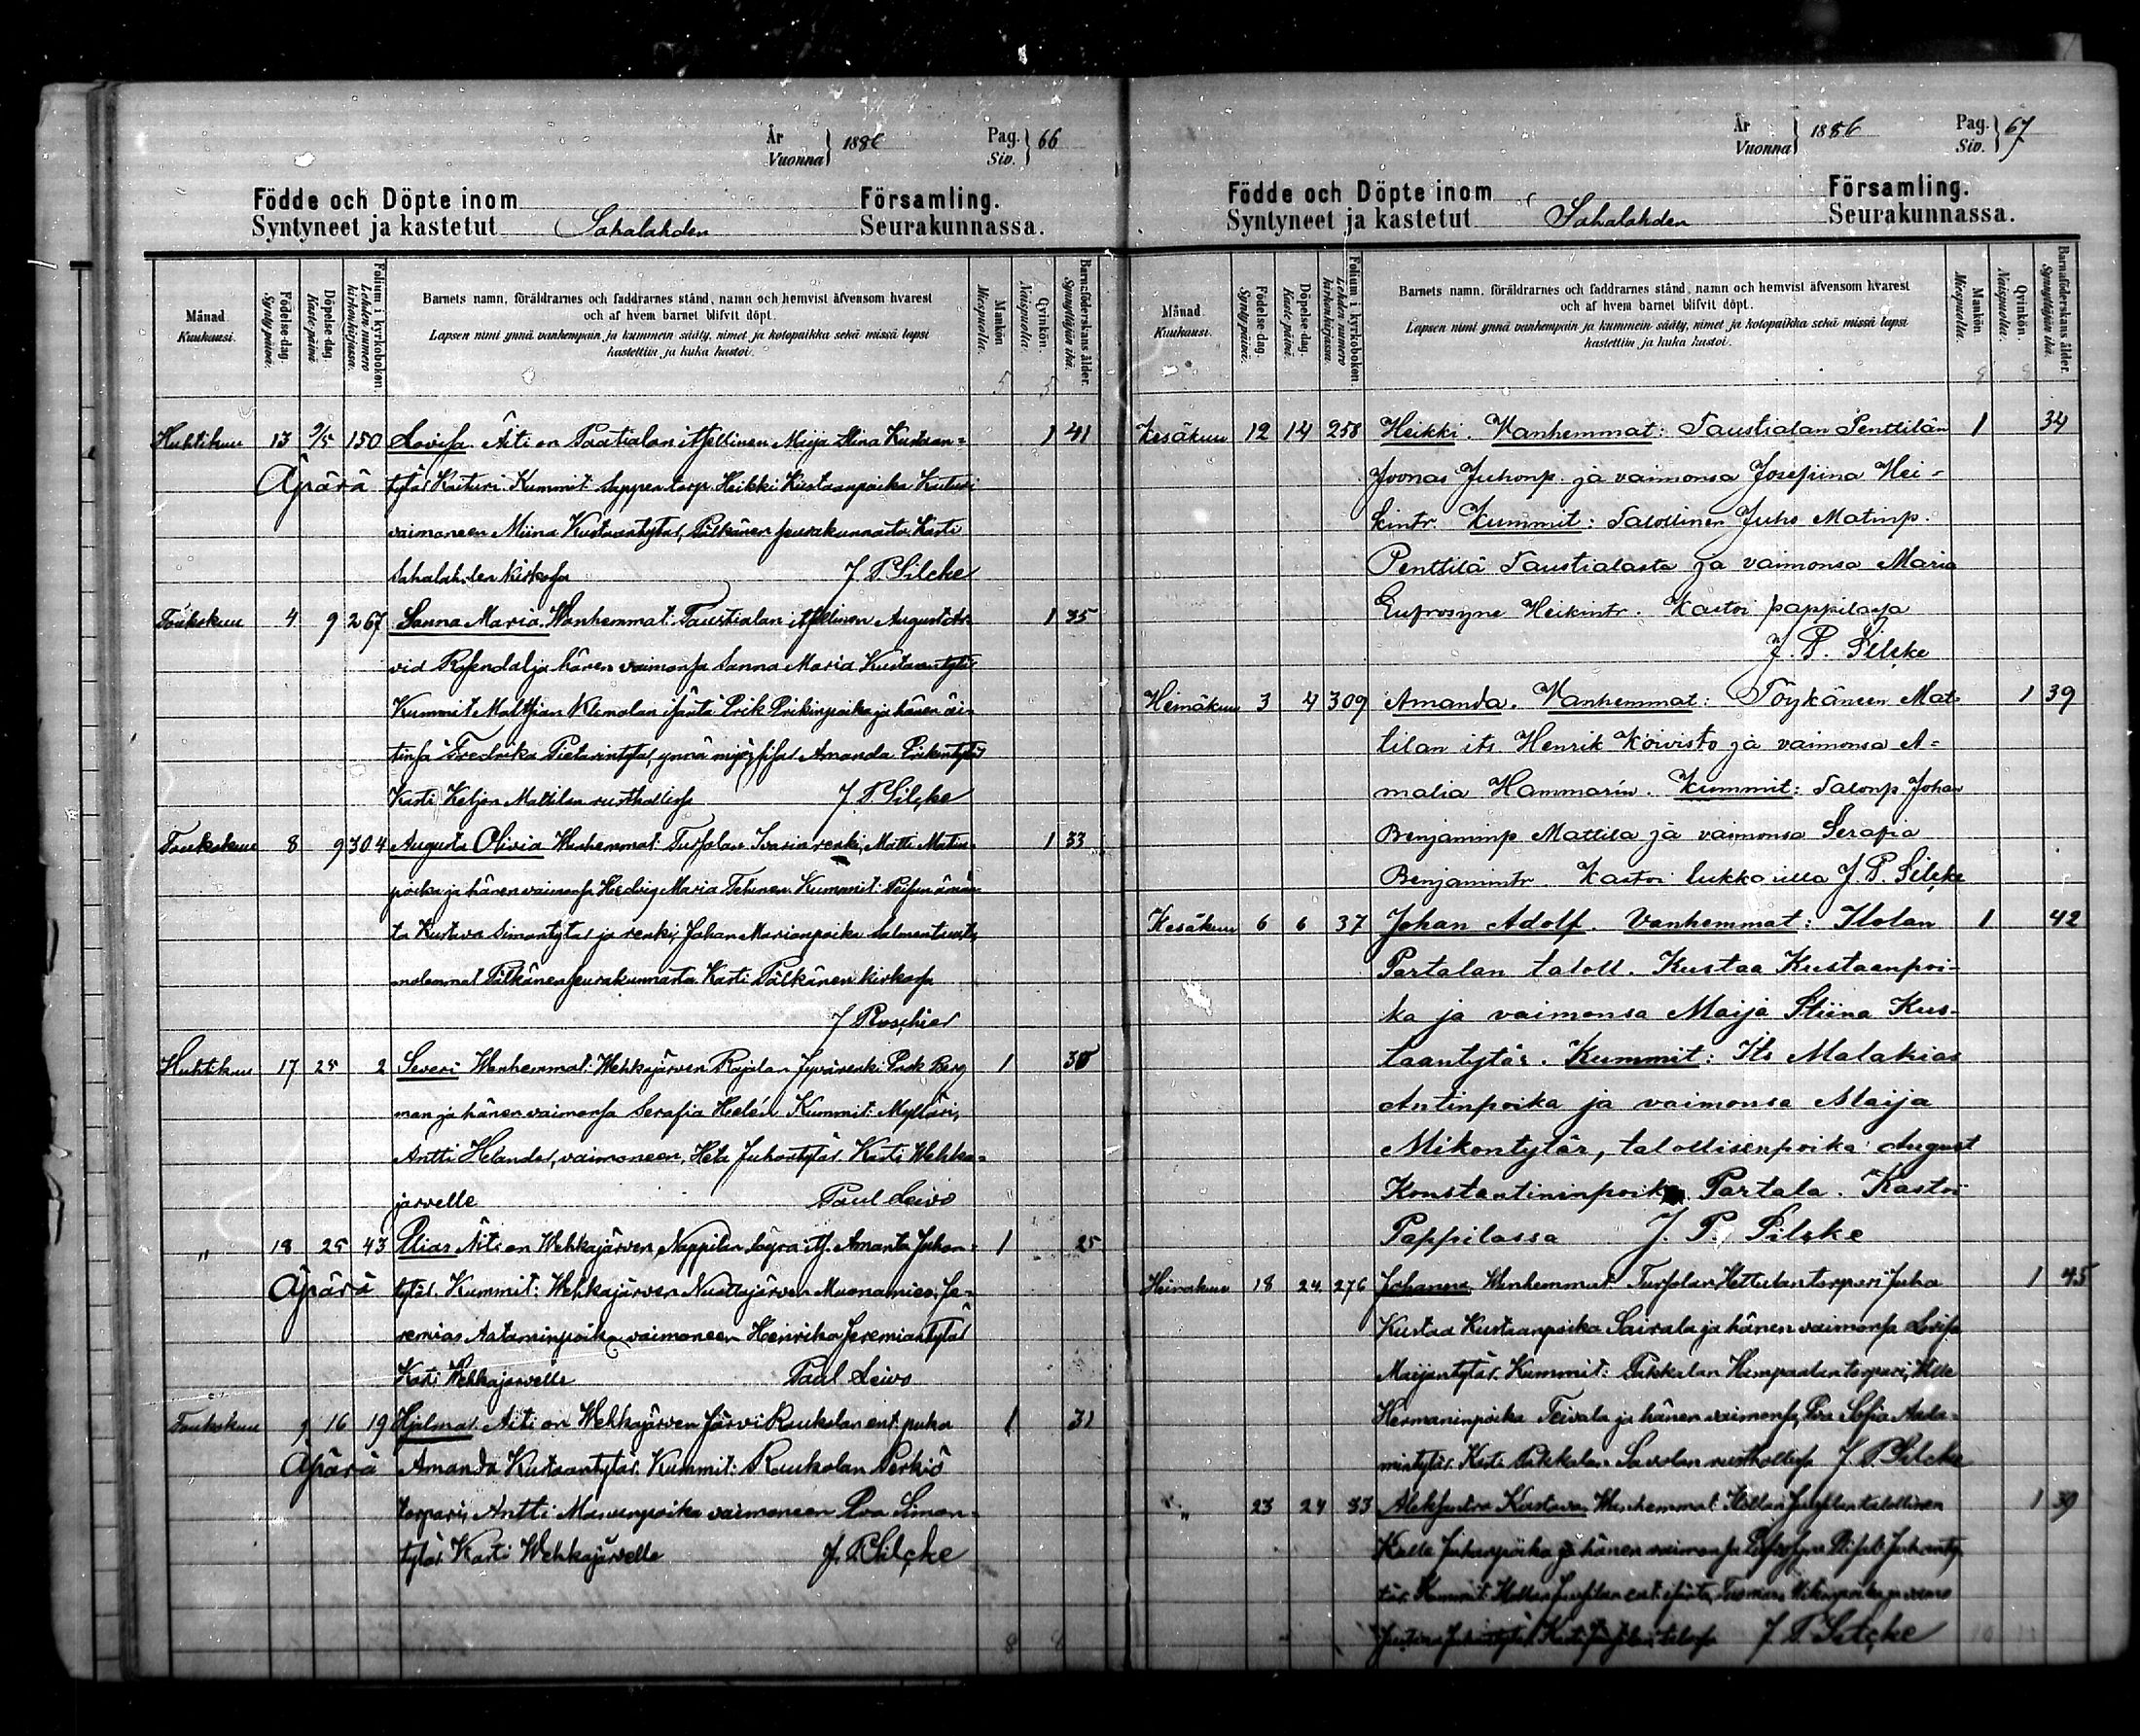 År
Vuonna } 1886 Pag.
Siv. } 66
Födde och Döpte inom Församling.
Syntyneet ja kastetut Sahalahden Seurakunnassa.
Månad
Kuukausi.
Födelse-dag.
Syntypäivä.
Döpelse-dag
Kaste-päivä
Folium i kyrkoboken.
Lehden numero kirkonkirjassa.
Barnets namn, föräldrarnes och faddrarnes stånd, namn och hemvist äfvensom hvarest
och af hvem barnet blifvit döpt.
Lapsen nimi ynnä vanhempain ja kummein sääty, nimet ja kotopaikka sekä missä lapsi
kastettiin ja kuka kastoi.
Mankön
Miespuolia.
Qvinkön.
Naispuolia.
Barnaföderskans ålder.
Synnyttäjän ikä.
Huhtikuu 13 9/5 150 Lovisa Äiti on itsellinen Maija Stina Kustaan= 1 41
Äpärä tytär Kaituri. Kummit torp. Heikki Kustaanpoika Kaituri
vaimoneen Miina Kustaantytär, Pälkäneen seurakunnasta. Kasti
Sahalahden kirkossa J. P. Silcke
Toukokuu 4 9 267 Sanna Maria. Wanhemmat: Taustialan itsellinen August Ar= 1 35
vid Rosendal ja hänen vaimonsa Sanna Maria Kustaantytär
Kummit Klemolan isäntä Erik Erikinpoika ja hänen äi=
tinsä Fredrika Pietarintytär, ynnä Amanda Erikintytär
Kasti Keljon Mattilan rusthollissa J. P. Silcke
Toukokuu 8 9 304 Augusta Olivia Wanhemmat: renki, Matti Matin= 1 33
poika ja hänen vaimonsa Hedvig Maria Kummit:
ta Kustava Simontytär ja renki, Johan Marianpoika
molemmat Pälkäneen seurakunnasta. Kasti Pälkäneen kirkossa
J Roschier
Huhtikuu 17 25 2 Severi Wanhemmat: Wehkajärven Rajalan Erik Berg 1 30
man ja hänen vaimonsa Serafia Helén Kummit: Mylläri,
Antti Helander, vaimoneen, Heta Juhontytär. Kasti Wehka=
järvelle Paul Leivo
„ 18 25 43 Elias Äiti on Wehkajärven Nappilan itl. Amanta Juhon= 1 25
Äpärä tytär. Kummit: Wehkajärven Muonamies, Je=
remias Aataminpoika vaimoneen Henrika Jeremiantytär
Kasti Wehkajärvelle Paul Leivo
Toukokuu 9 16 19 Hjalmar. Äiti on Wehkajärven Järvi Ruokolan ent. piika 1 31
Äpärä Amanda Kustaantytär. Kummit: Ruokolan Perkiö
torpari, Antti vaimoneen Eva Simon=
tytär. Kasti Wehkajärvelle J. P. Silcke
År
Vuonna } 1886 Pag.
Siv. } 67
Födde och Döpte inom Församling.
Syntyneet ja kastetut Sahalahden Seurakunnassa.
Månad
Kuukausi.
Födelse-dag.
Syntypäivä.
Döpelse-dag.
Kaste-päivä.
Folium i kyrkoboken.
Lehden numero kirkonkirjassa.
Barnets namn, föräldrarnes och faddrarnes stånd, namn och hemvist äfvensom hvarest
och af hvem barnet blifvit döpt.
Lapsen nimi ynnä vanhempain ja kummein sääty, nimet ja kotopaikka sekä missä lapsi
kastettiin ja kuka kastoi.
Mankön.
Miespuolia.
Qvinkön.
Naispuolia.
Barnaföderskans ålder.
Synnyttäjän ikä.
Kesäkuu 12 14 258 Heikki. Vanhemmat: Taustialan Penttilän 1 34
Joonas Juhonp. ja vaimonsa Josefiina Hei=
kintr. Kummit: Talollinen Juho Matinp.
Penttilä Taustialasta ja vaimonsa Maria
Eufrosyne Heikintr. Kastoi pappilassa
J. P. Silcke
Heinäkuu 3 4 309 Amanda. Vanhemmat: Töykäneen Mat= 1 39
tilan its. Henrik Koivisto ja vaimonsa A=
malia Hammarin. Kummit: Talonp Johan
Benjaminp Mattila ja vaimonsa Serafia
Benjamintr. Kastoi J. P. Silcke
Kesäkuu 6 6 37 Johan Adolf. Vanhemmat: Ilolan 1 42
Partalan taloll. Kustaa Kustaanpoi-
ka ja vaimonsa Maija Stiina Kus-
taantytär. Kummit: Its Malakias
Antinpoika ja vaimonsa Maija
Mikontytär, talollisenpoika August
Konstantininpoika Partala. Kastoi
Pappilassa J. P. Silcke
Heinäkuu 18 24 276 Johanna. Wanhemmat: torpari Juha 1 45
Kustaa Kustaanpoika Sairala ja hänen vaimonsa Lovisa
Maijantytär. Kummit: Pakkalan torpari, Kalle
Hermaninpoika Teivala ja hänen vaimonsa, Eva Sofia Aata=
mintytär. Kasti Pakkalan Savolan rusthollissa J. P. Silcke
„ 23 24 33 Aleksandra Kustava. Wanhemmat: talollinen 1 39
Kalle Juhanpoika ja hänen vaimonsa
tär. Kummit:
J. P. Silcke